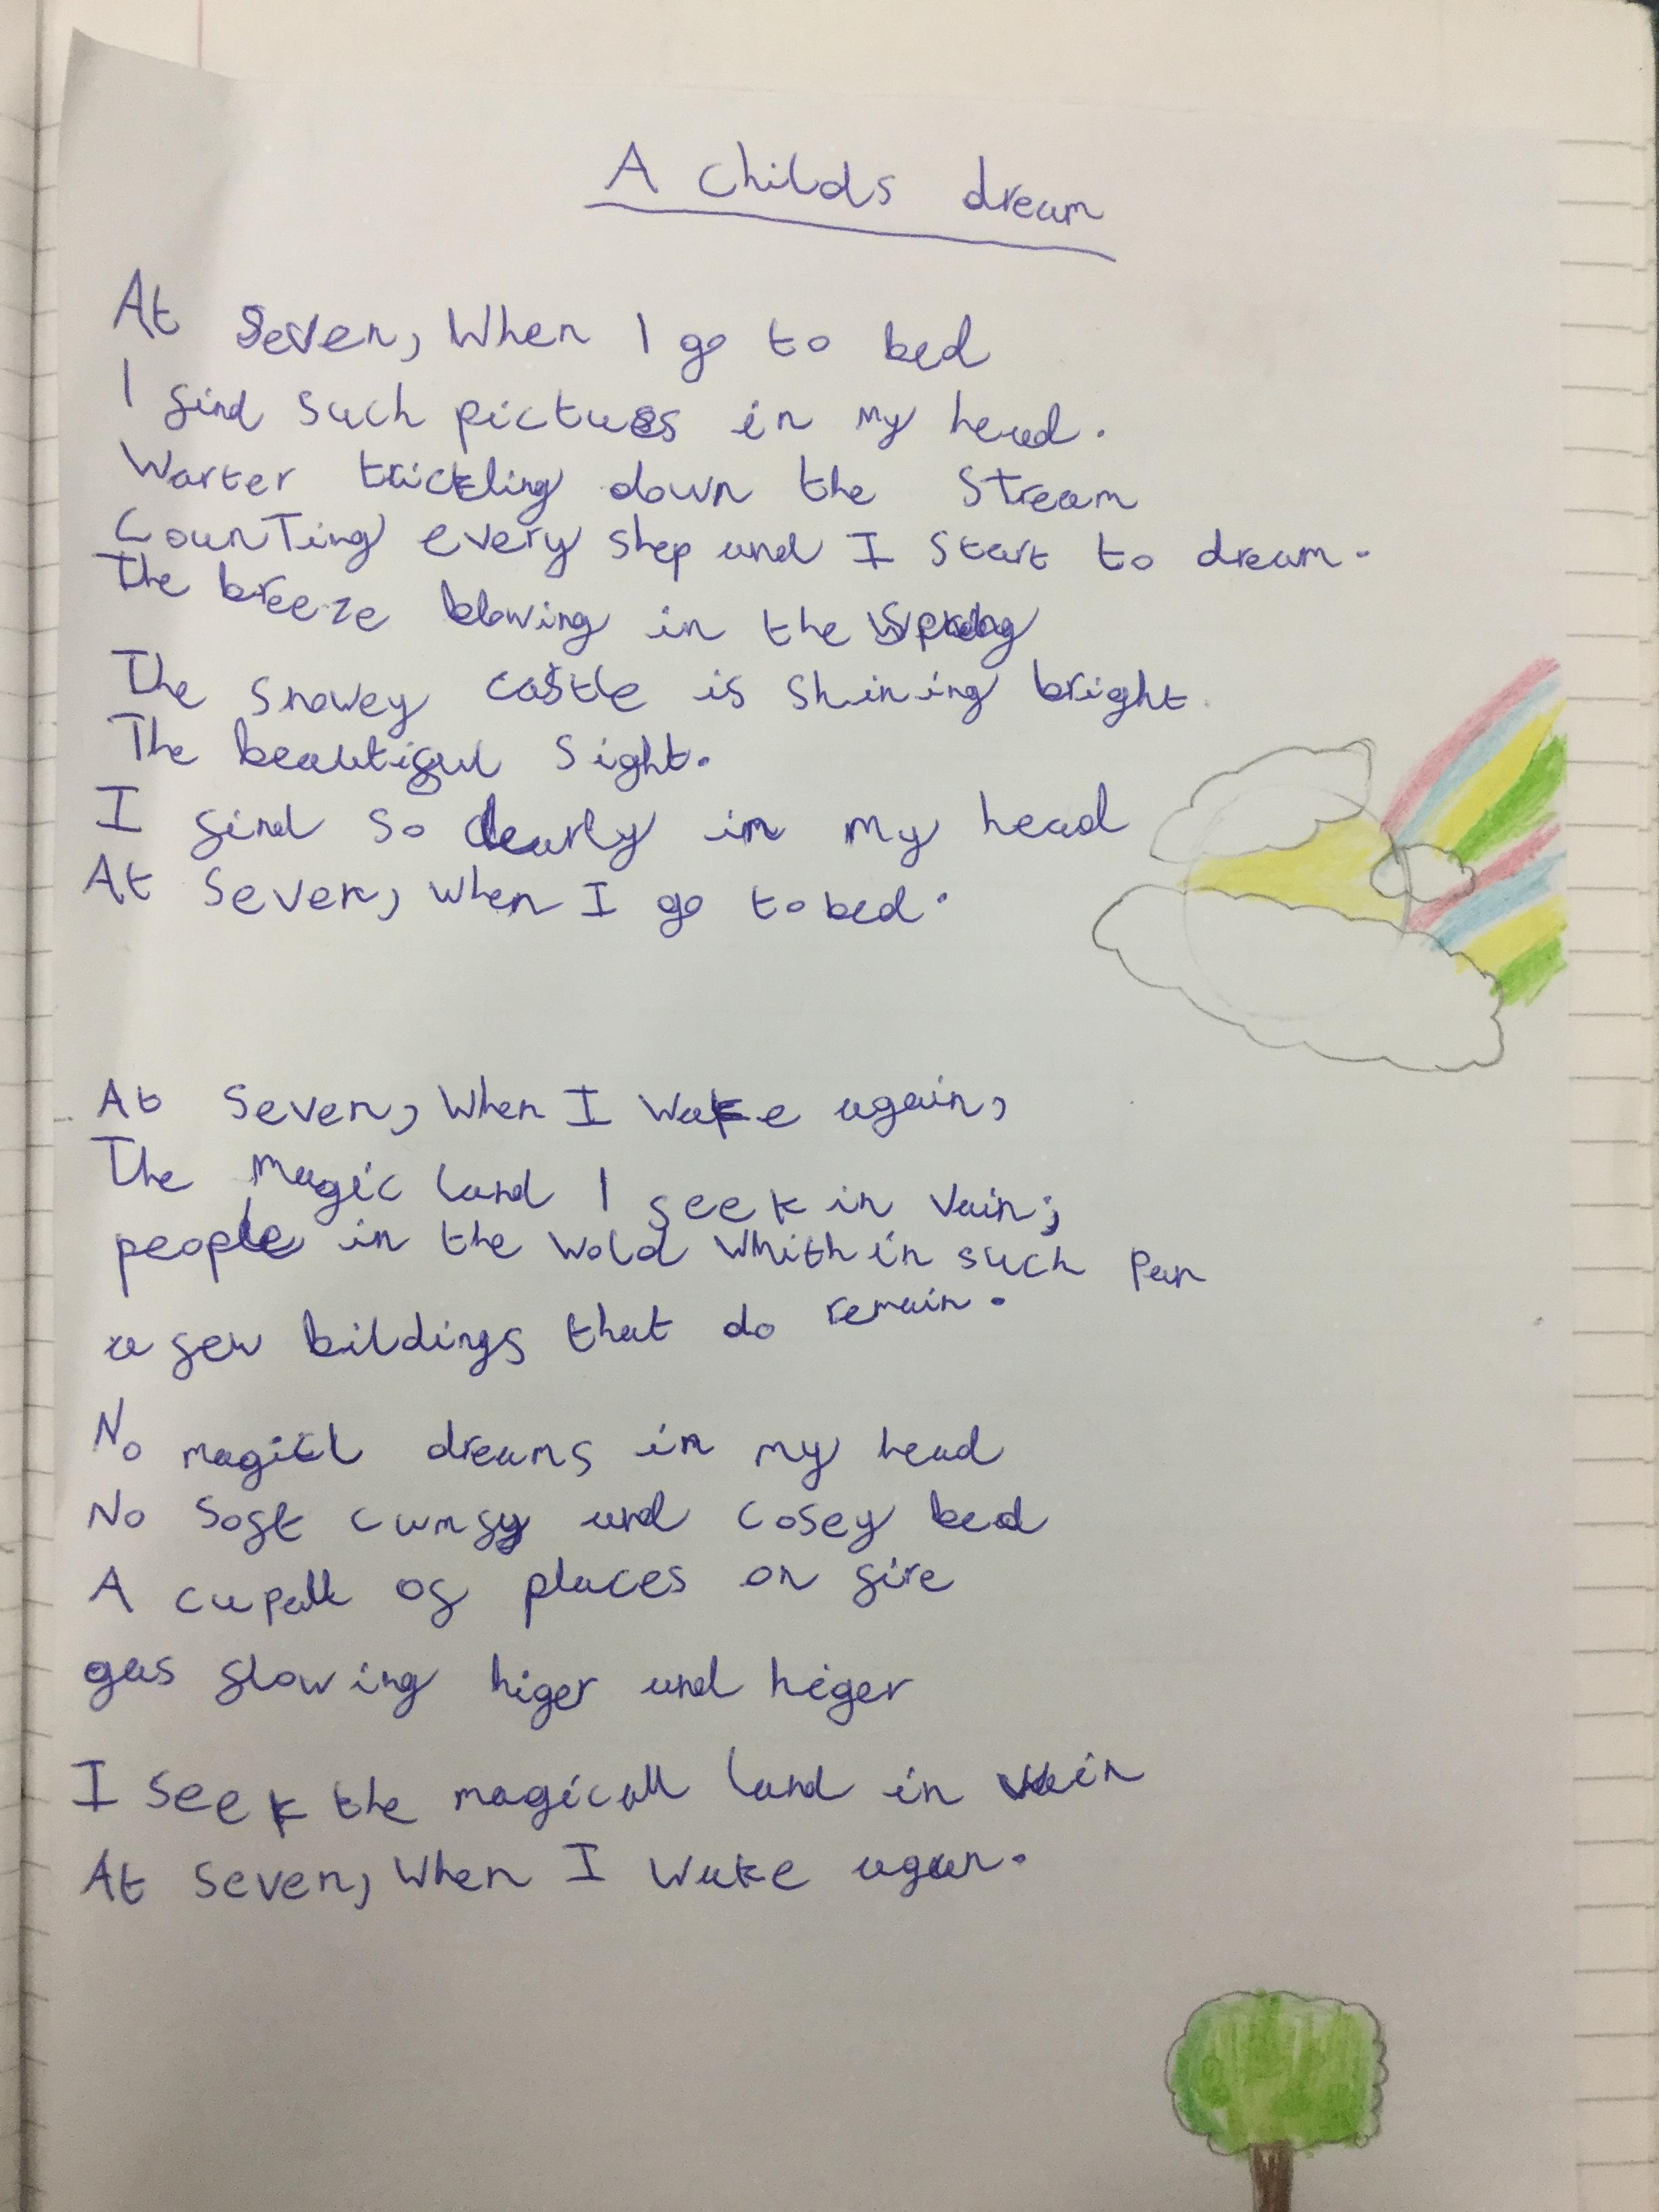 A childs dream
At Seven, When I go to bed
I find such pictues in my head.
Warter trickling down the Stream
Counting every step and I start to dream.
The breeze blowing in the
The snowey castle is shining bright
The beautiful sight.
I find so clearly in my head
At Seven, when I go to bed.
At Seven, When I wake again,
The magic land I seek in vain;
people in the wold whith in such pan
a few bildings that do remain.
No magicl dreams in my head
No soft cumfy and cosey bed
A cupall of places on fire
gas flowing higer and higer
I seek the magicall land in vain
At seven, When I wake again.